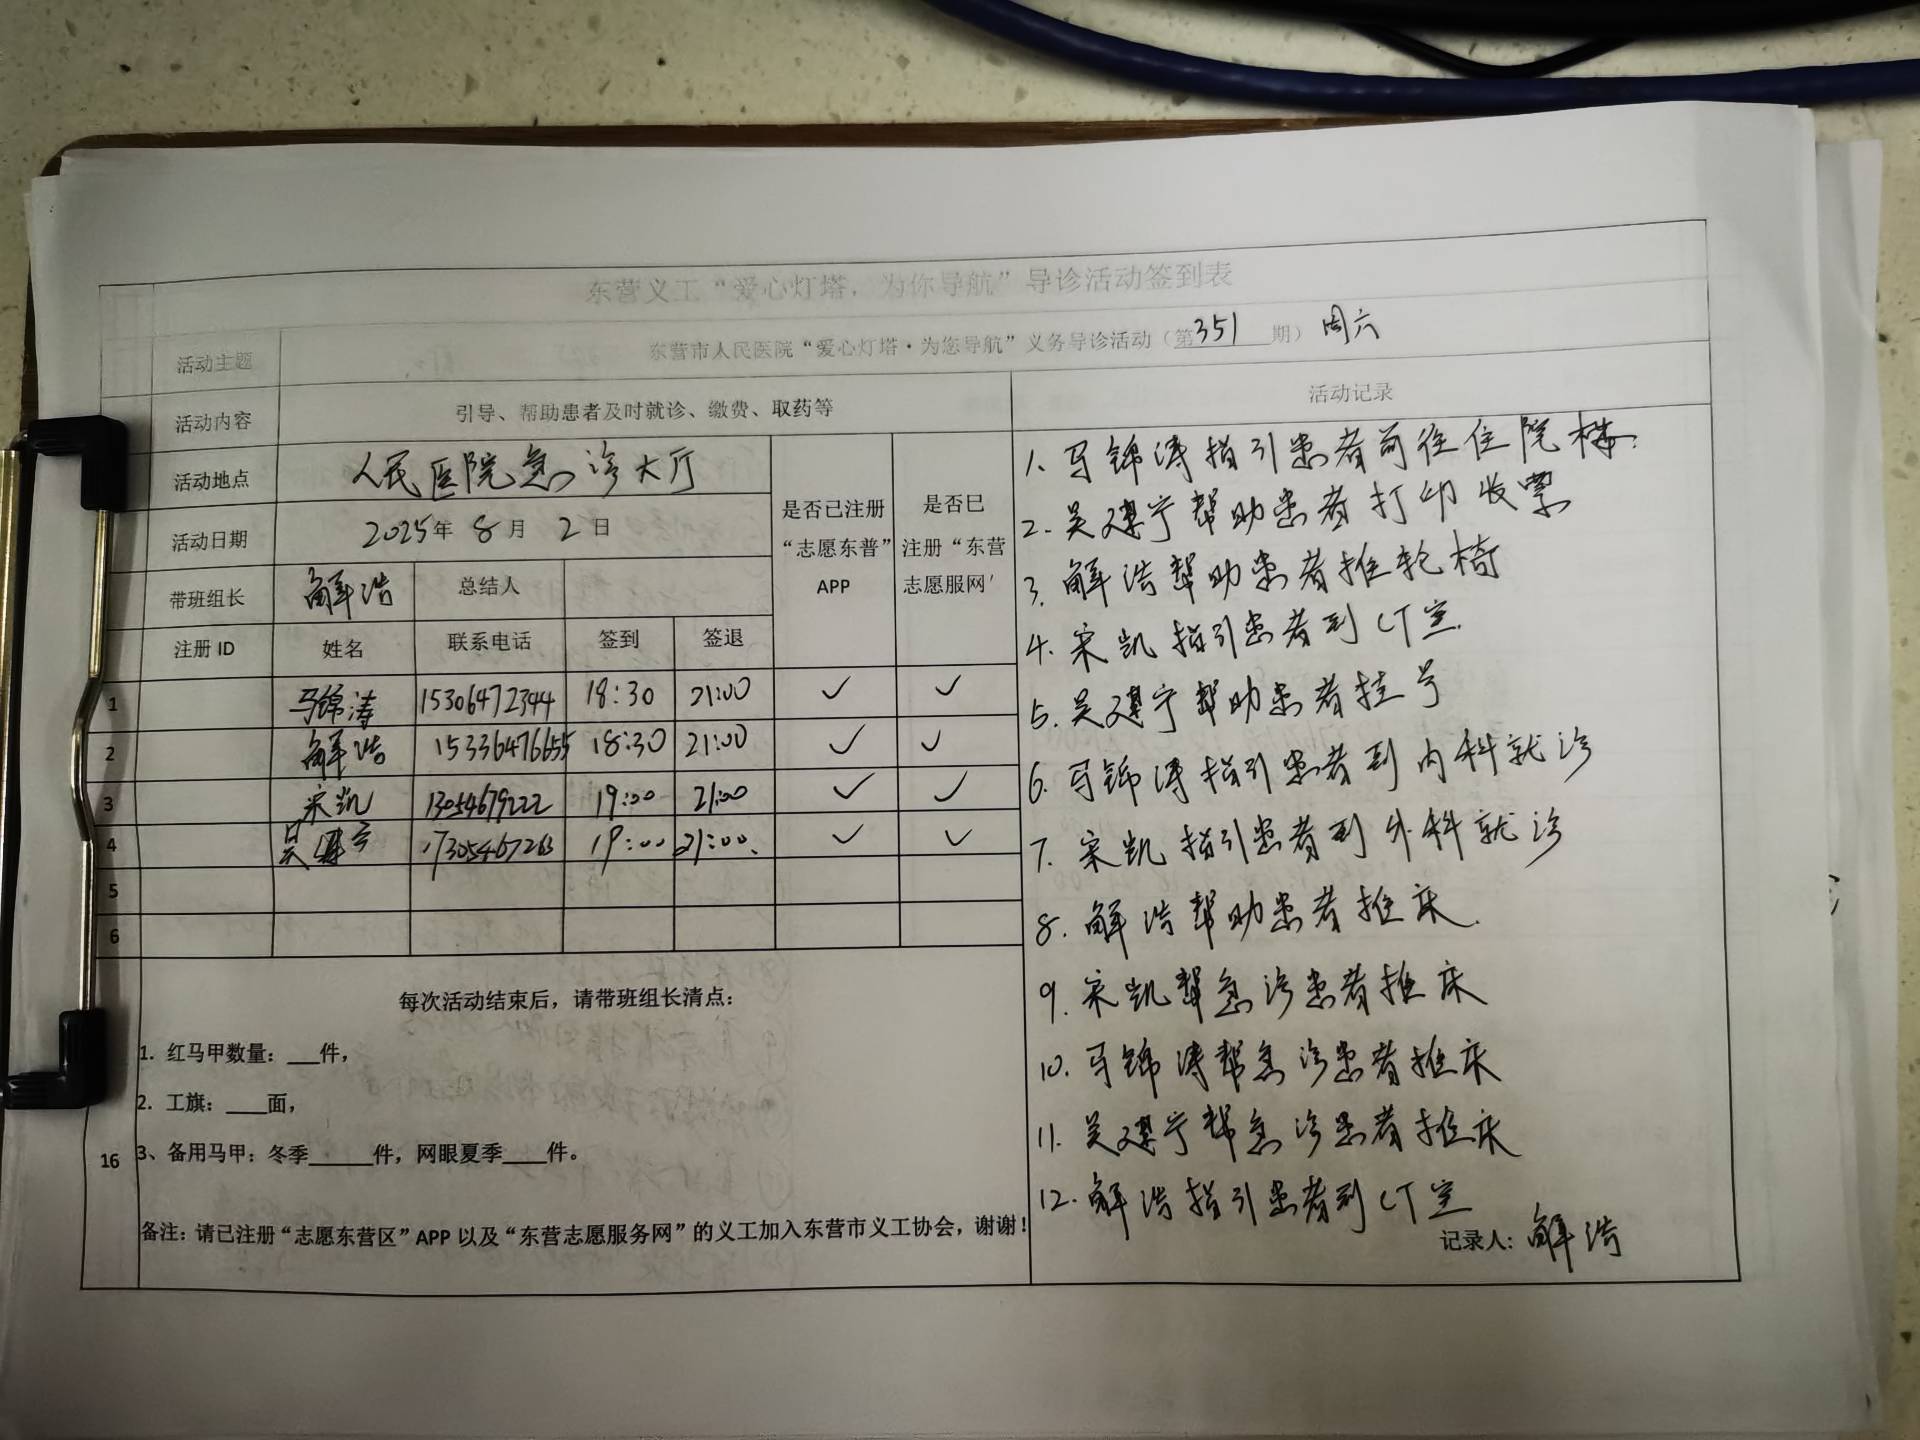 东营义工“爱心灯塔，为你导航”导诊活动签到表
活动主题 东营市人民医院“爱心灯塔·为您导航”义务导诊活动（第351期）周六
活动内容 引导、帮助患者及时就诊、缴费、取药等 活动记录
活动地点 人民医院急诊大厅
活动日期 2025年 8月 2日
是否已注册“志愿东营”APP
是否已注册“东营志愿服网’
带班组长 解浩 总结人
注册ID 姓名 联系电话 签到 签退
1 马锦涛 15306472344 18:30 21:00 ✓ ✓
2 解浩 15336476655 18:30 21:00 ✓ ✓
3 宋凯 13054679222 19:00 21:00 ✓ ✓
4 吴遵宁 19:00 21:00. ✓ ✓
5
6
每次活动结束后，请带班组长清点：
1. 红马甲数量：___件，
2. 工旗：____面，
3、备用马甲：冬季______件，网眼夏季____件。
16
备注：请已注册“志愿东营区”APP 以及“东营志愿服务网”的义工加入东营市义工协会，谢谢！
1. 马锦涛指引患者前往住院楼.
2. 吴遵宁帮助患者打印收票
3. 解浩帮助患者推轮椅
4. 宋凯指引患者到CT室.
5. 吴遵宁帮助患者挂号
6. 马锦涛指引患者到内科就诊
7. 宋凯指引患者到外科就诊
8. 解浩帮助患者推床.
9. 宋凯帮急诊患者推床
10. 马锦涛帮急诊患者推床
11. 吴遵宁帮急诊患者推床
12. 解浩指引患者到CT室
记录人：解浩